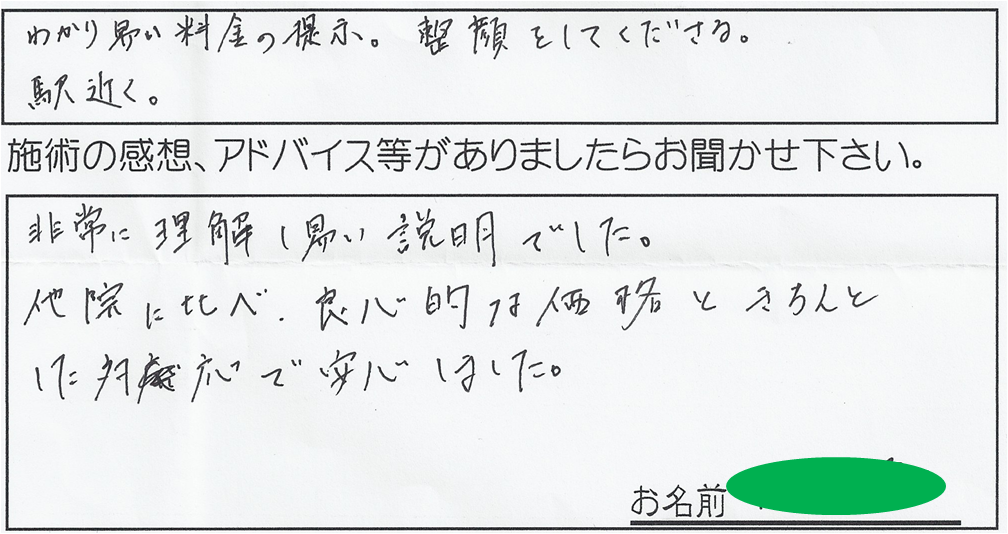 わかり易い料金の提示。整顔をしてくださる。
駅近く。
施術の感想、アドバイス等がありましたらお聞かせ下さい。
非常に理解し易い説明でした。
他院に比べ、良心的な価格ときちんと
した対応で安心しました。
お名前